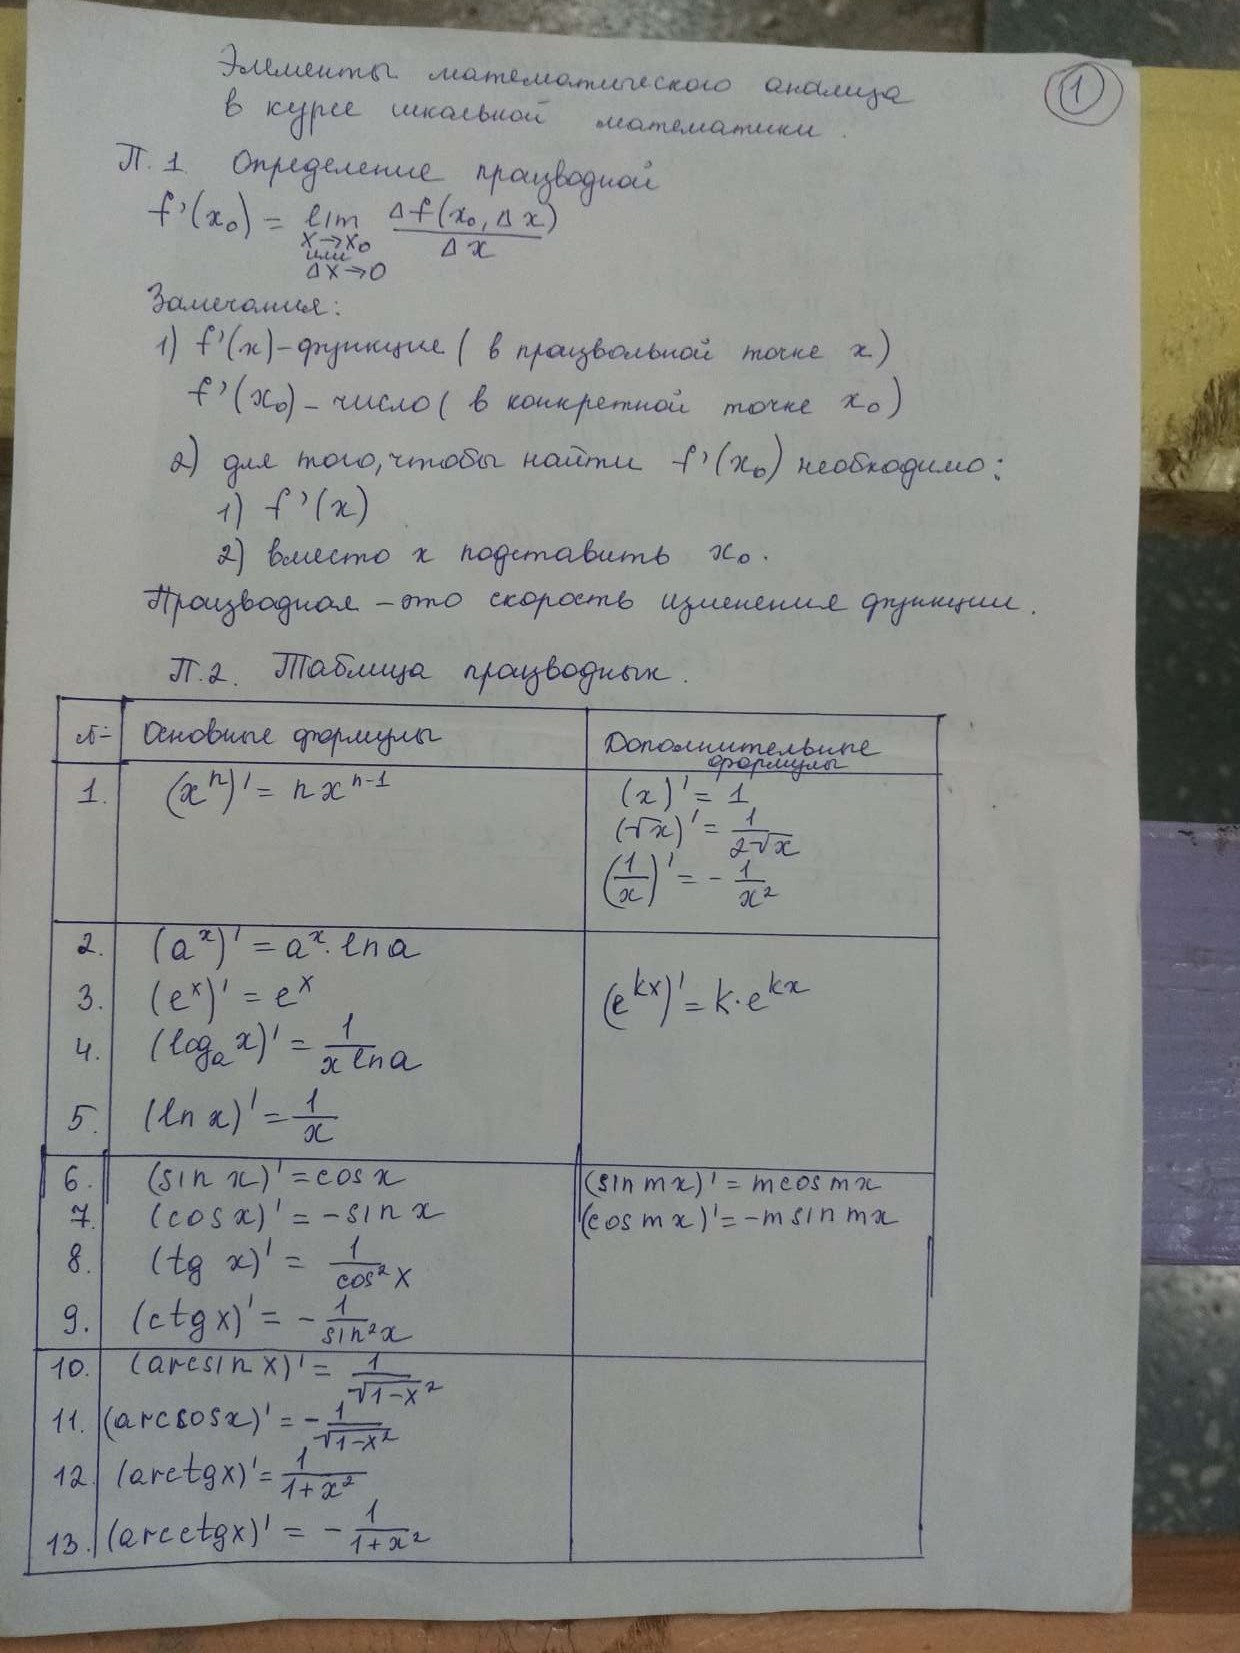 Элементы математического анализа
в курсе школьной математики.
1
П.1. Определение працводной
f'(x₀) = lim Δf(x₀, Δx)/Δx
x→x₀
или
Δx→0
Замечания:
1) f'(x) – функция ( в працвольной точке x)
f'(x₀) – число ( в конкретной точке x₀)
2) для того, чтобы найти f'(x₀) необходимо:
1) f'(x)
2) вместо x подставить x₀.
Працводная – это скорость изменения функции.
П.2. Таблица працводных.
№ Основные формулы Дополнительные формулы
1. (xⁿ)' = nxⁿ⁻¹ (x)' = 1
(√x)' = 1/(2√x)
(1/x)' = - 1/x²
2. (aˣ)' = aˣ·ln a
3. (eˣ)' = eˣ (e^(kx))' = k·e^(kx)
4. (logₐx)' = 1/(x ln a)
5. (ln x)' = 1/x
6. (sin x)' = cos x (sin mx)' = m cos mx
7. (cos x)' = -sin x (cos mx)' = -m sin mx
8. (tg x)' = 1/cos²x
9. (ctg x)' = - 1/sin²x
10. (arcsin x)' = 1/√(1-x²)
11. (arcsosx)' = - 1/√(1-x²)
12. (arctgx)' = 1/(1+x²)
13. (arcctgx)' = - 1/(1+x²)